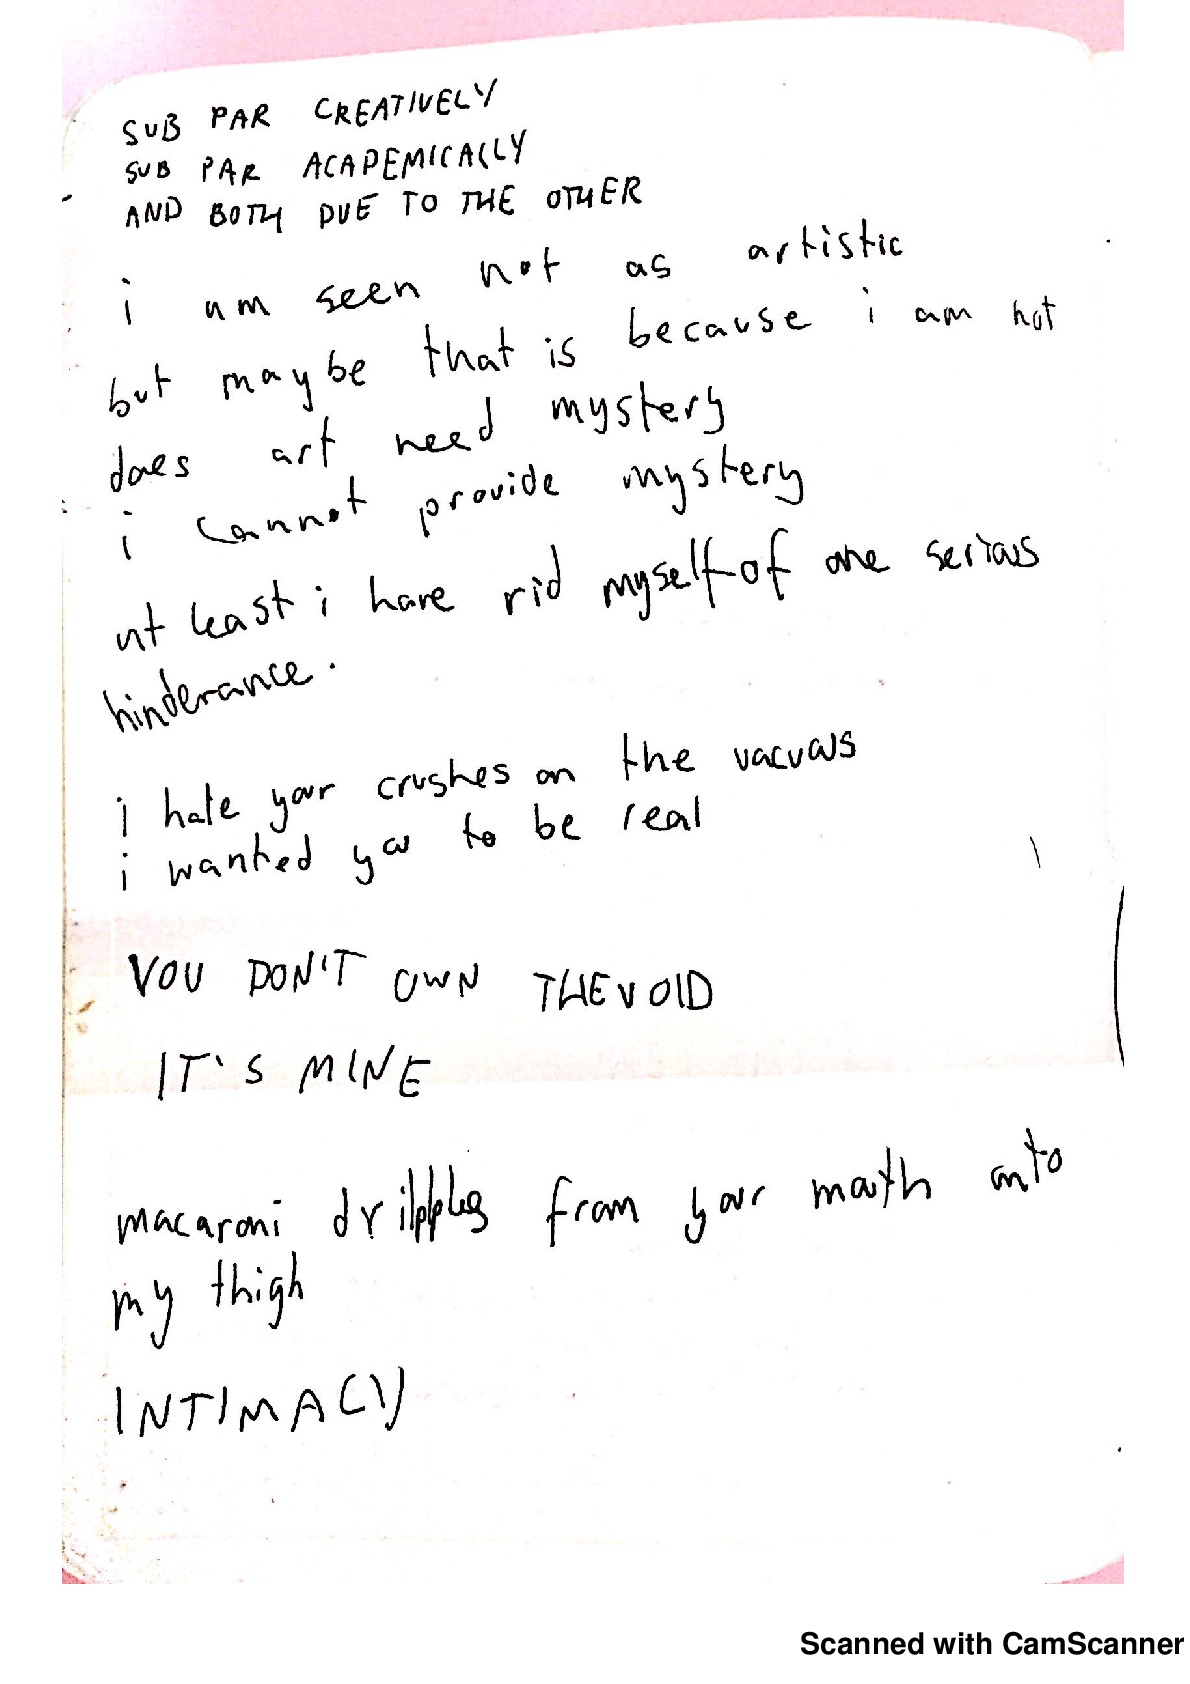 SUB PAR CREATIVELY
SUB PAR ACADEMICALLY
AND BOTH DUE TO THE OTHER
i am seen not as artistic
but maybe that is because i am not
does art need mystery
i cannot provide mystery
at least i have rid myself of one serious
hinderance.
i hate your crushes on the vacuous
i wanted you to be real
YOU DON'T OWN THE VOID
IT'S MINE
macaroni dripples from your mouth onto
my thigh
INTIMACY
Scanned with CamScanner